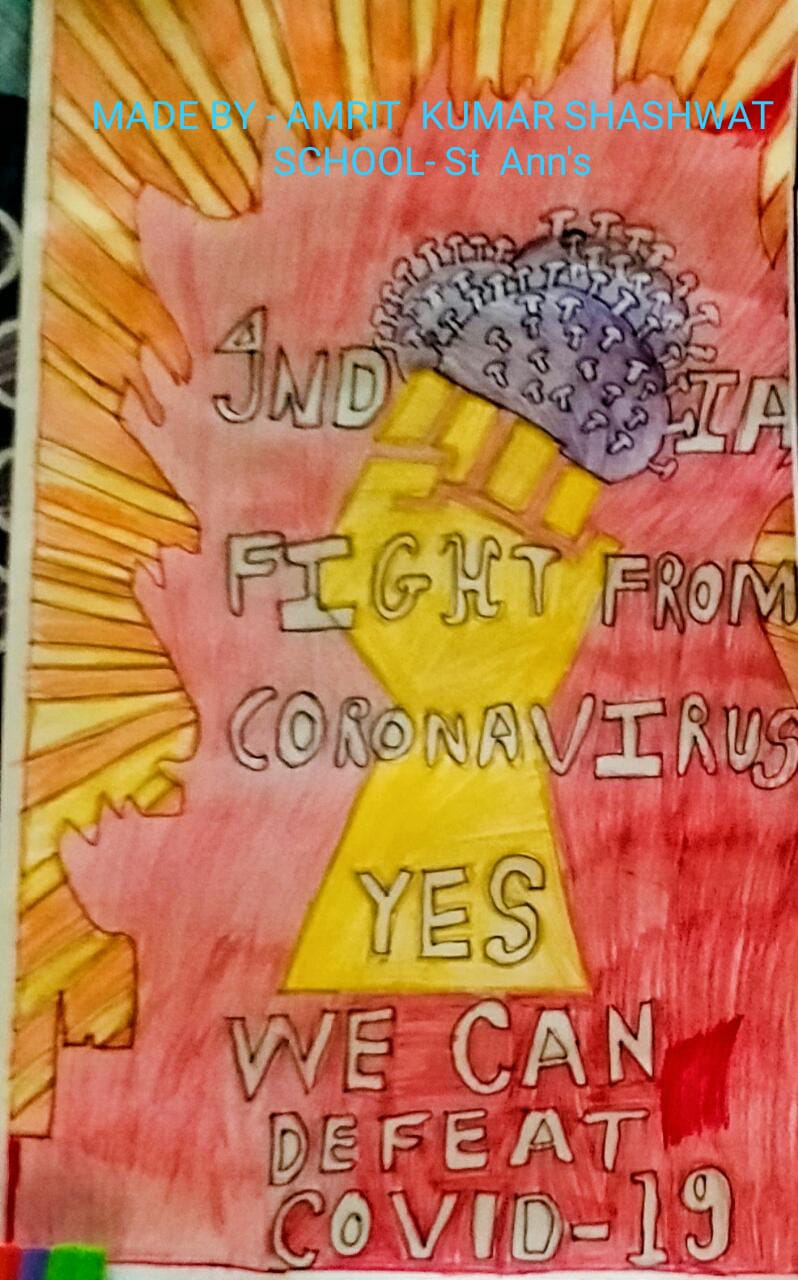 MADE BY - AMRIT KUMAR SHASHWAT
SCHOOL- St Ann's
INDIA
FIGHT FROM
CORONAVIRUS
YES
WE CAN
DEFEAT
COVID-19